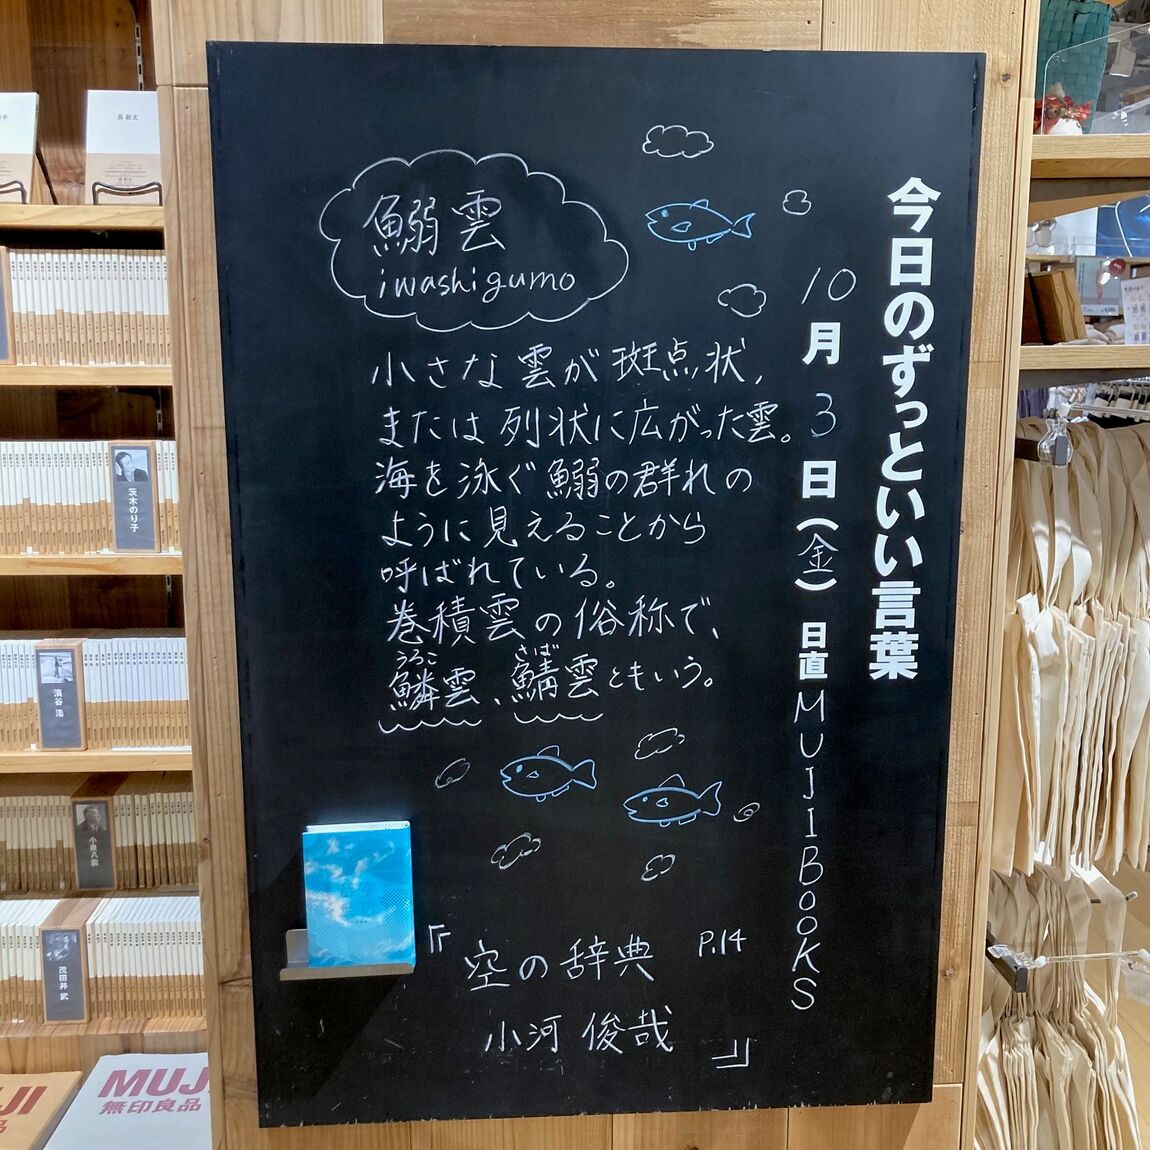 今日のずっといい言葉
10月3日(金) 日直 MUJI BOOKS
鰯雲
iwashigumo
小さな雲が斑点状、
または列状に広がった雲。
海を泳ぐ鰯の群れの
ように見えることから
呼ばれている。
巻積雲の俗称で、
うろこ さば
鱗雲、鯖雲ともいう。
『空の辞典 P.14
小河 俊哉』
長 新太
茨木のり子
濱谷 浩
小泉八雲
茂田井 武
MUJI
無印良品